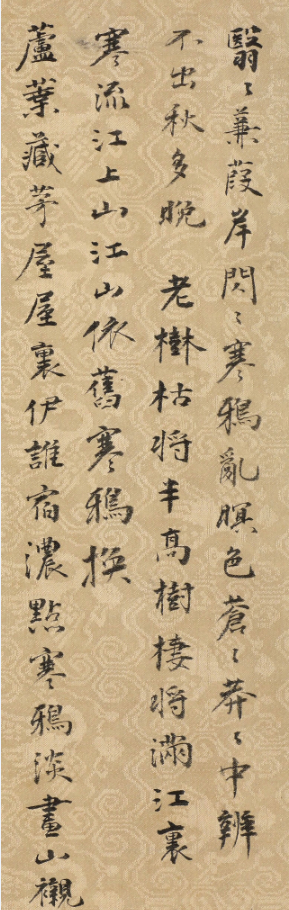 翳〻蒹葭岸閃〻寒鴉亂暝色蒼〻莽〻中辨
不出秋多晚　老樹枯將半高樹棲將滿江裏
寒流江上山江山依舊寒鴉換
蘆葉藏茅屋屋裏伊誰宿濃點寒鴉淡畫山觀